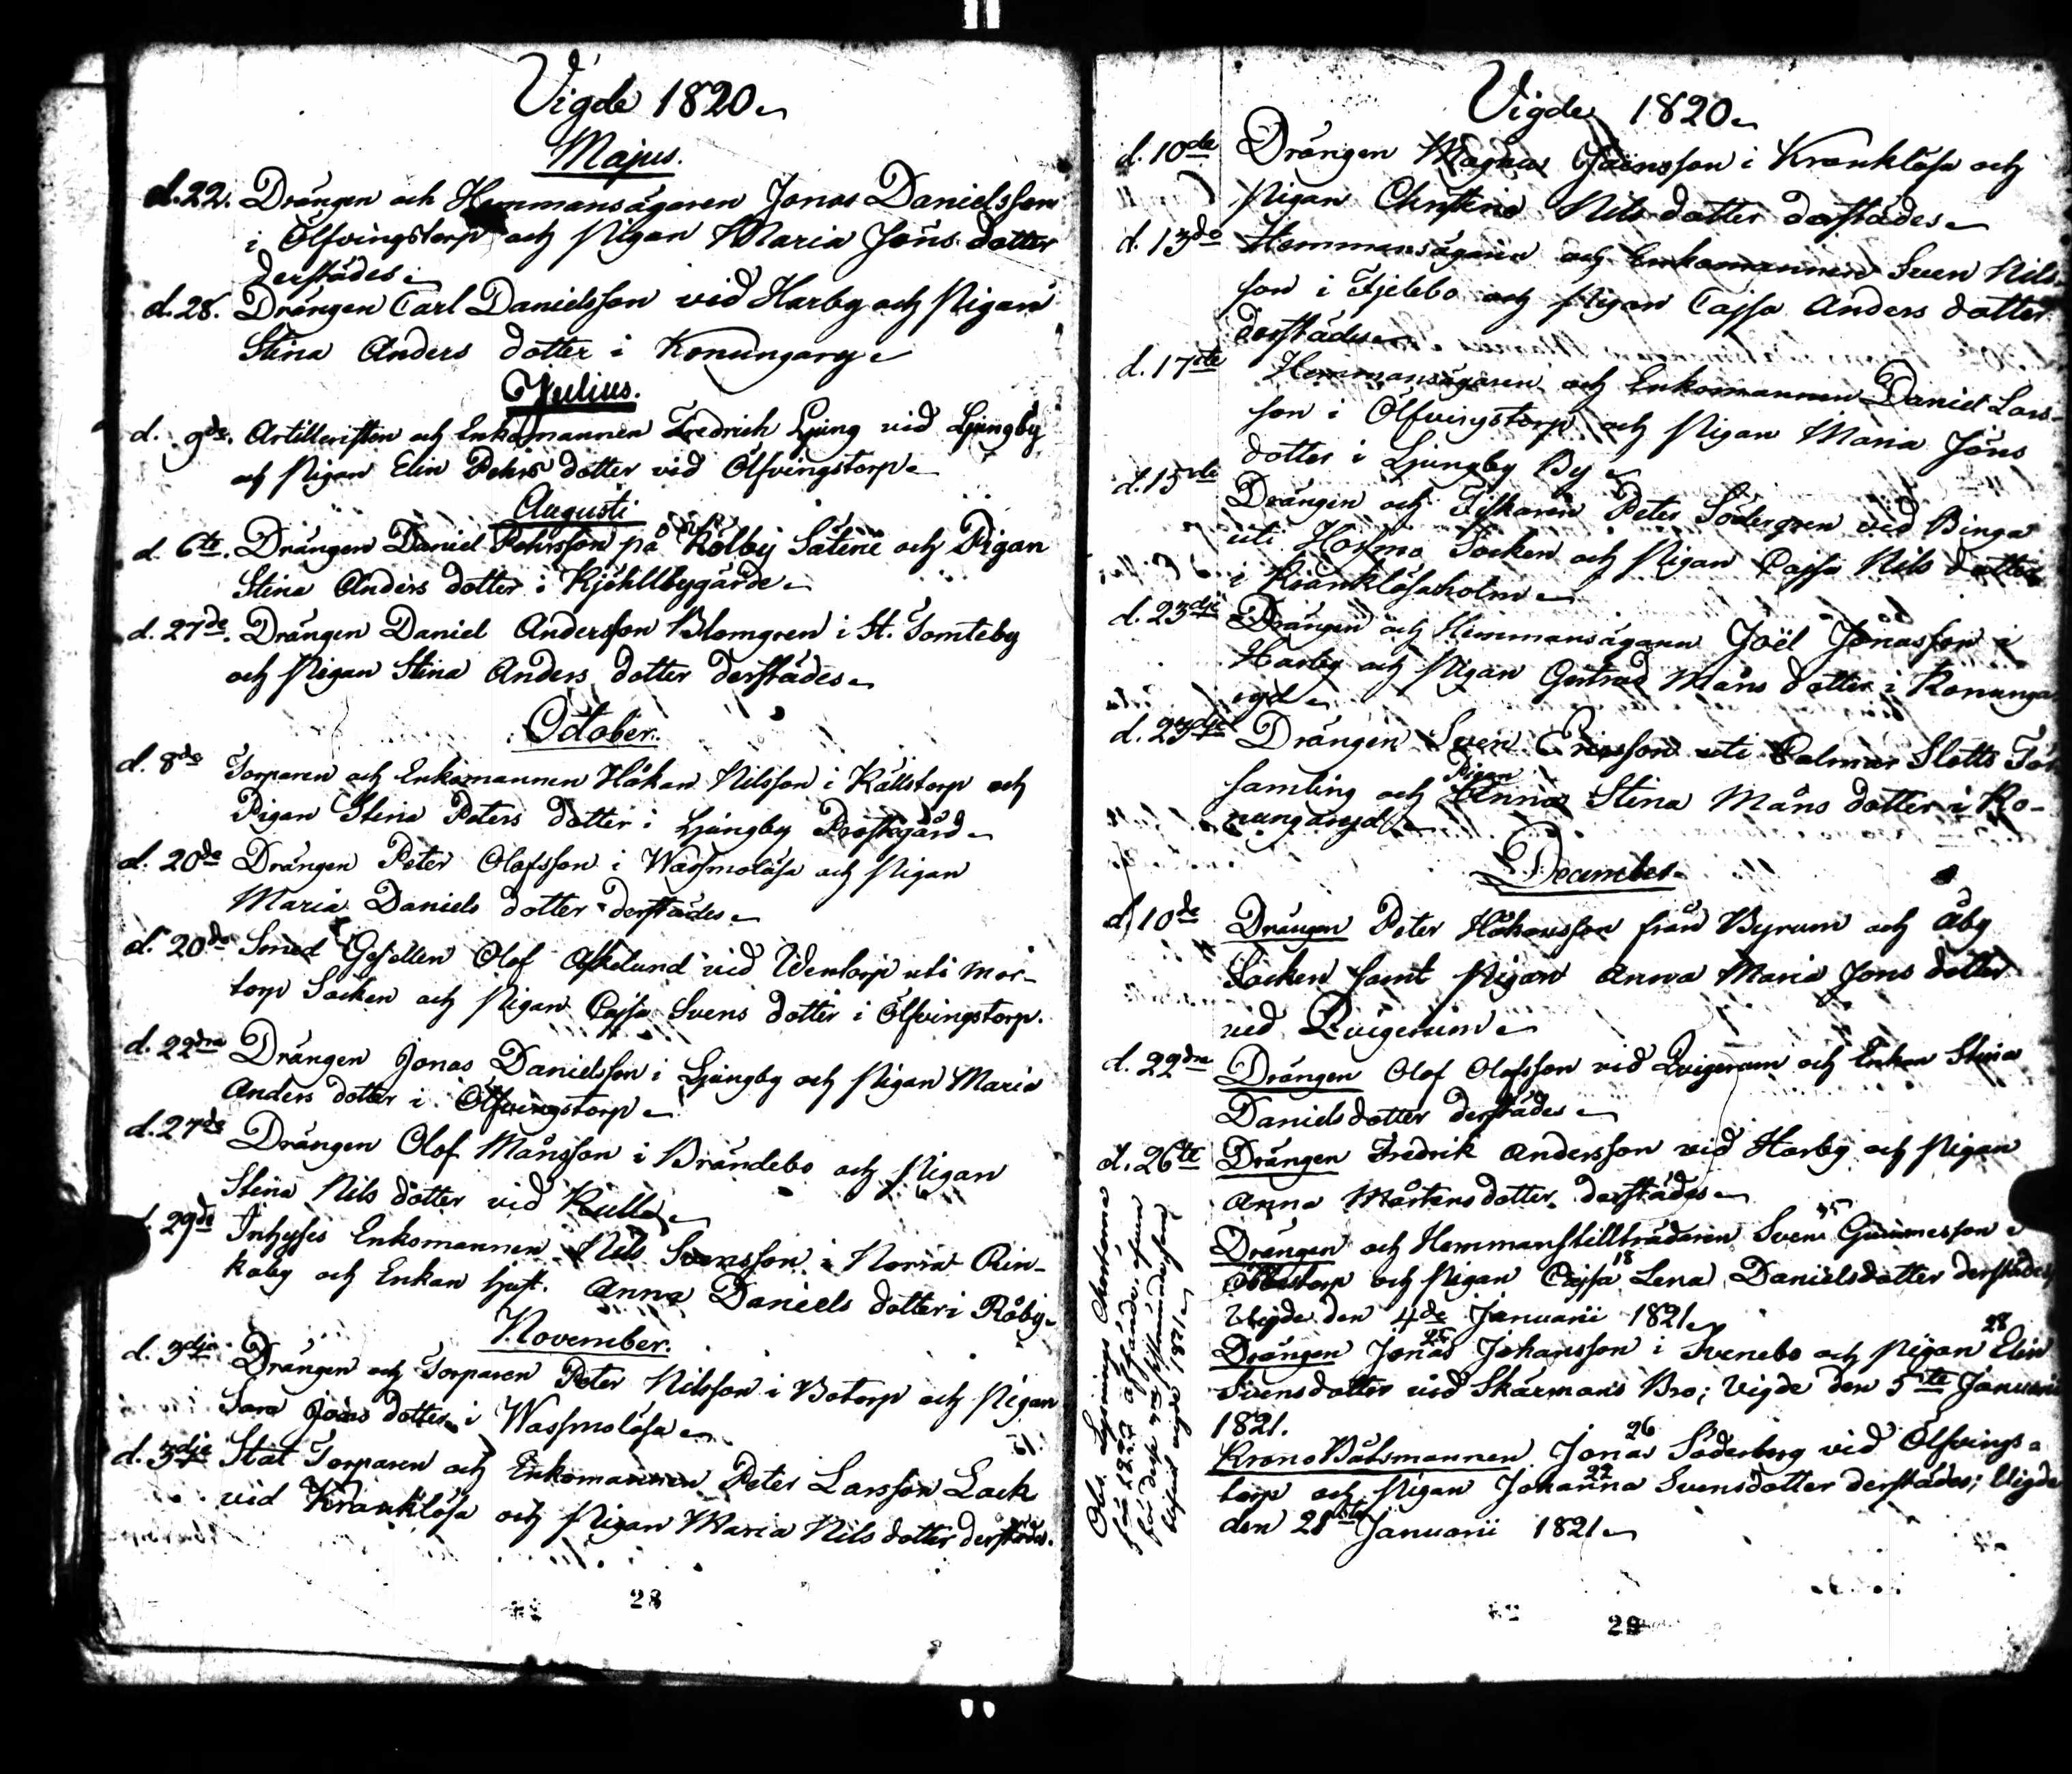 Vigde 1820
Majus.
d. 22. Drängen och Hemmansägaren Jonas Danielsson
i Ölfvingstorp och Pigan Maria Jöns dotter
derstädes
d. 28. Drängen Carl Danielsson vid Harby och Pigan
Stina Anders dotter i
Julius.
d. 9de. Artilleristen och Enkomannen Fredrich Ljung vid Ljungby
och Pigan Elin Pehrs dotter vid Ölfvingstorp
Augusti
d. 6te. Drängen Daniel Pehrsson på Kölby och Pigan
Stina Anders dotter i
d. 27de. Drängen Daniel Andersson Blomgren i St. Tomteby
och Pigan Stina Anders dotter derstädes
October.
d. 8de Torparen och Enkomannen Håkan Nilsson i Källstorp och
Pigan Stina Peters dotter i Ljungby Prostegård
d. 20de Drängen Peter Olofsson i Wassmolösa och Pigan
Maria Daniels dotter derstädes
d. 20de Smed Gesellen Olof vid uti Mor-
torp Socken och Pigan Cajsa Svens dotter i Ölfvingstorp.
d. 22dra Drängen Jonas Danielsson i Ljungby och Pigan Maria
Anders dotter i Ölfvingstorp
d. 27de Drängen Olof Månsson i Brändebo och Pigan
Stina Nils dotter vid Kulla
29de Inhyses Enkomannen Nils Svensson i Norra Rin-
kaby och Enkan Hust. Anna Daniels dotter i Råby
November.
d. 3dje Drängen och Torparen Peter Nilsson i Botorp och Pigan
Sara Jöns dotter i Wassmolösa
d. 3dje Stat Torparen och Enkomannen Peter Larsson Lack
vid Kranklösa och Pigan Maria Nils dotter derstädes.
28
Vigde 1820
d. 10de Drängen Magnus i Kranklösa och
Pigan Christina Nils dotter derstädes
d. 13de Hemmansägaren och Enkomannen Sven Nils-
son i Fjelebo och Pigan Cajsa Anders dotter
derstädes
d. 17de Hemmansägaren och Enkomannen Daniel Lars-
son i Ölfvingstorp och Pigan Maria Jöns
dotter i Ljungby By
d. 15de Drängen och Fiskaren Peter Södergren vid Binga
uti Hossmo Socken och Pigan Cajsa Nils dotter
i Kranklösaholm
d. 23dje Drängen och Hemmansägaren Joël Jonasson i
Harby och Pigan Gertrud Måns dotter i Konunga
egd
d. 23dje Drängen Sven Ericsson uti Calmar Slotts För
samling och Pigan Anna Stina Måns dotter i Ko-
nungaegd
December
d. 10de Drängen Peter Håkansson från Byrum och Åby
Socken samt Pigan Anna Maria Jons dotter
vid Qvigerum
d. 22dra Drängen Olof Olofsson vid Qvigerum och Enkan Stina
Danielsdotter derstädes
d. 26te Drängen Fredrik Andersson vid Harby och Pigan
Anna Mårtensdotter derstädes
Drängen och Hemmanstillträdaren Sven Gummesson i
och Pigan Cajsa 18 Lena Danielsdotter derstädes
Vigde den 4de Januarii 1821
Drängen Jonas Johansson i Svenebo och Pigan 28 Elin
Svensdotter vid Skärmans Bro; Vigde den 5te Januarii
1821.
Krono Båtsmannen Jonas 26 Söderberg vid Ölfvings-
torp och Pigan Johanna 22 Svensdotter derstädes; Vigde
den 28 Januarii 1821
29